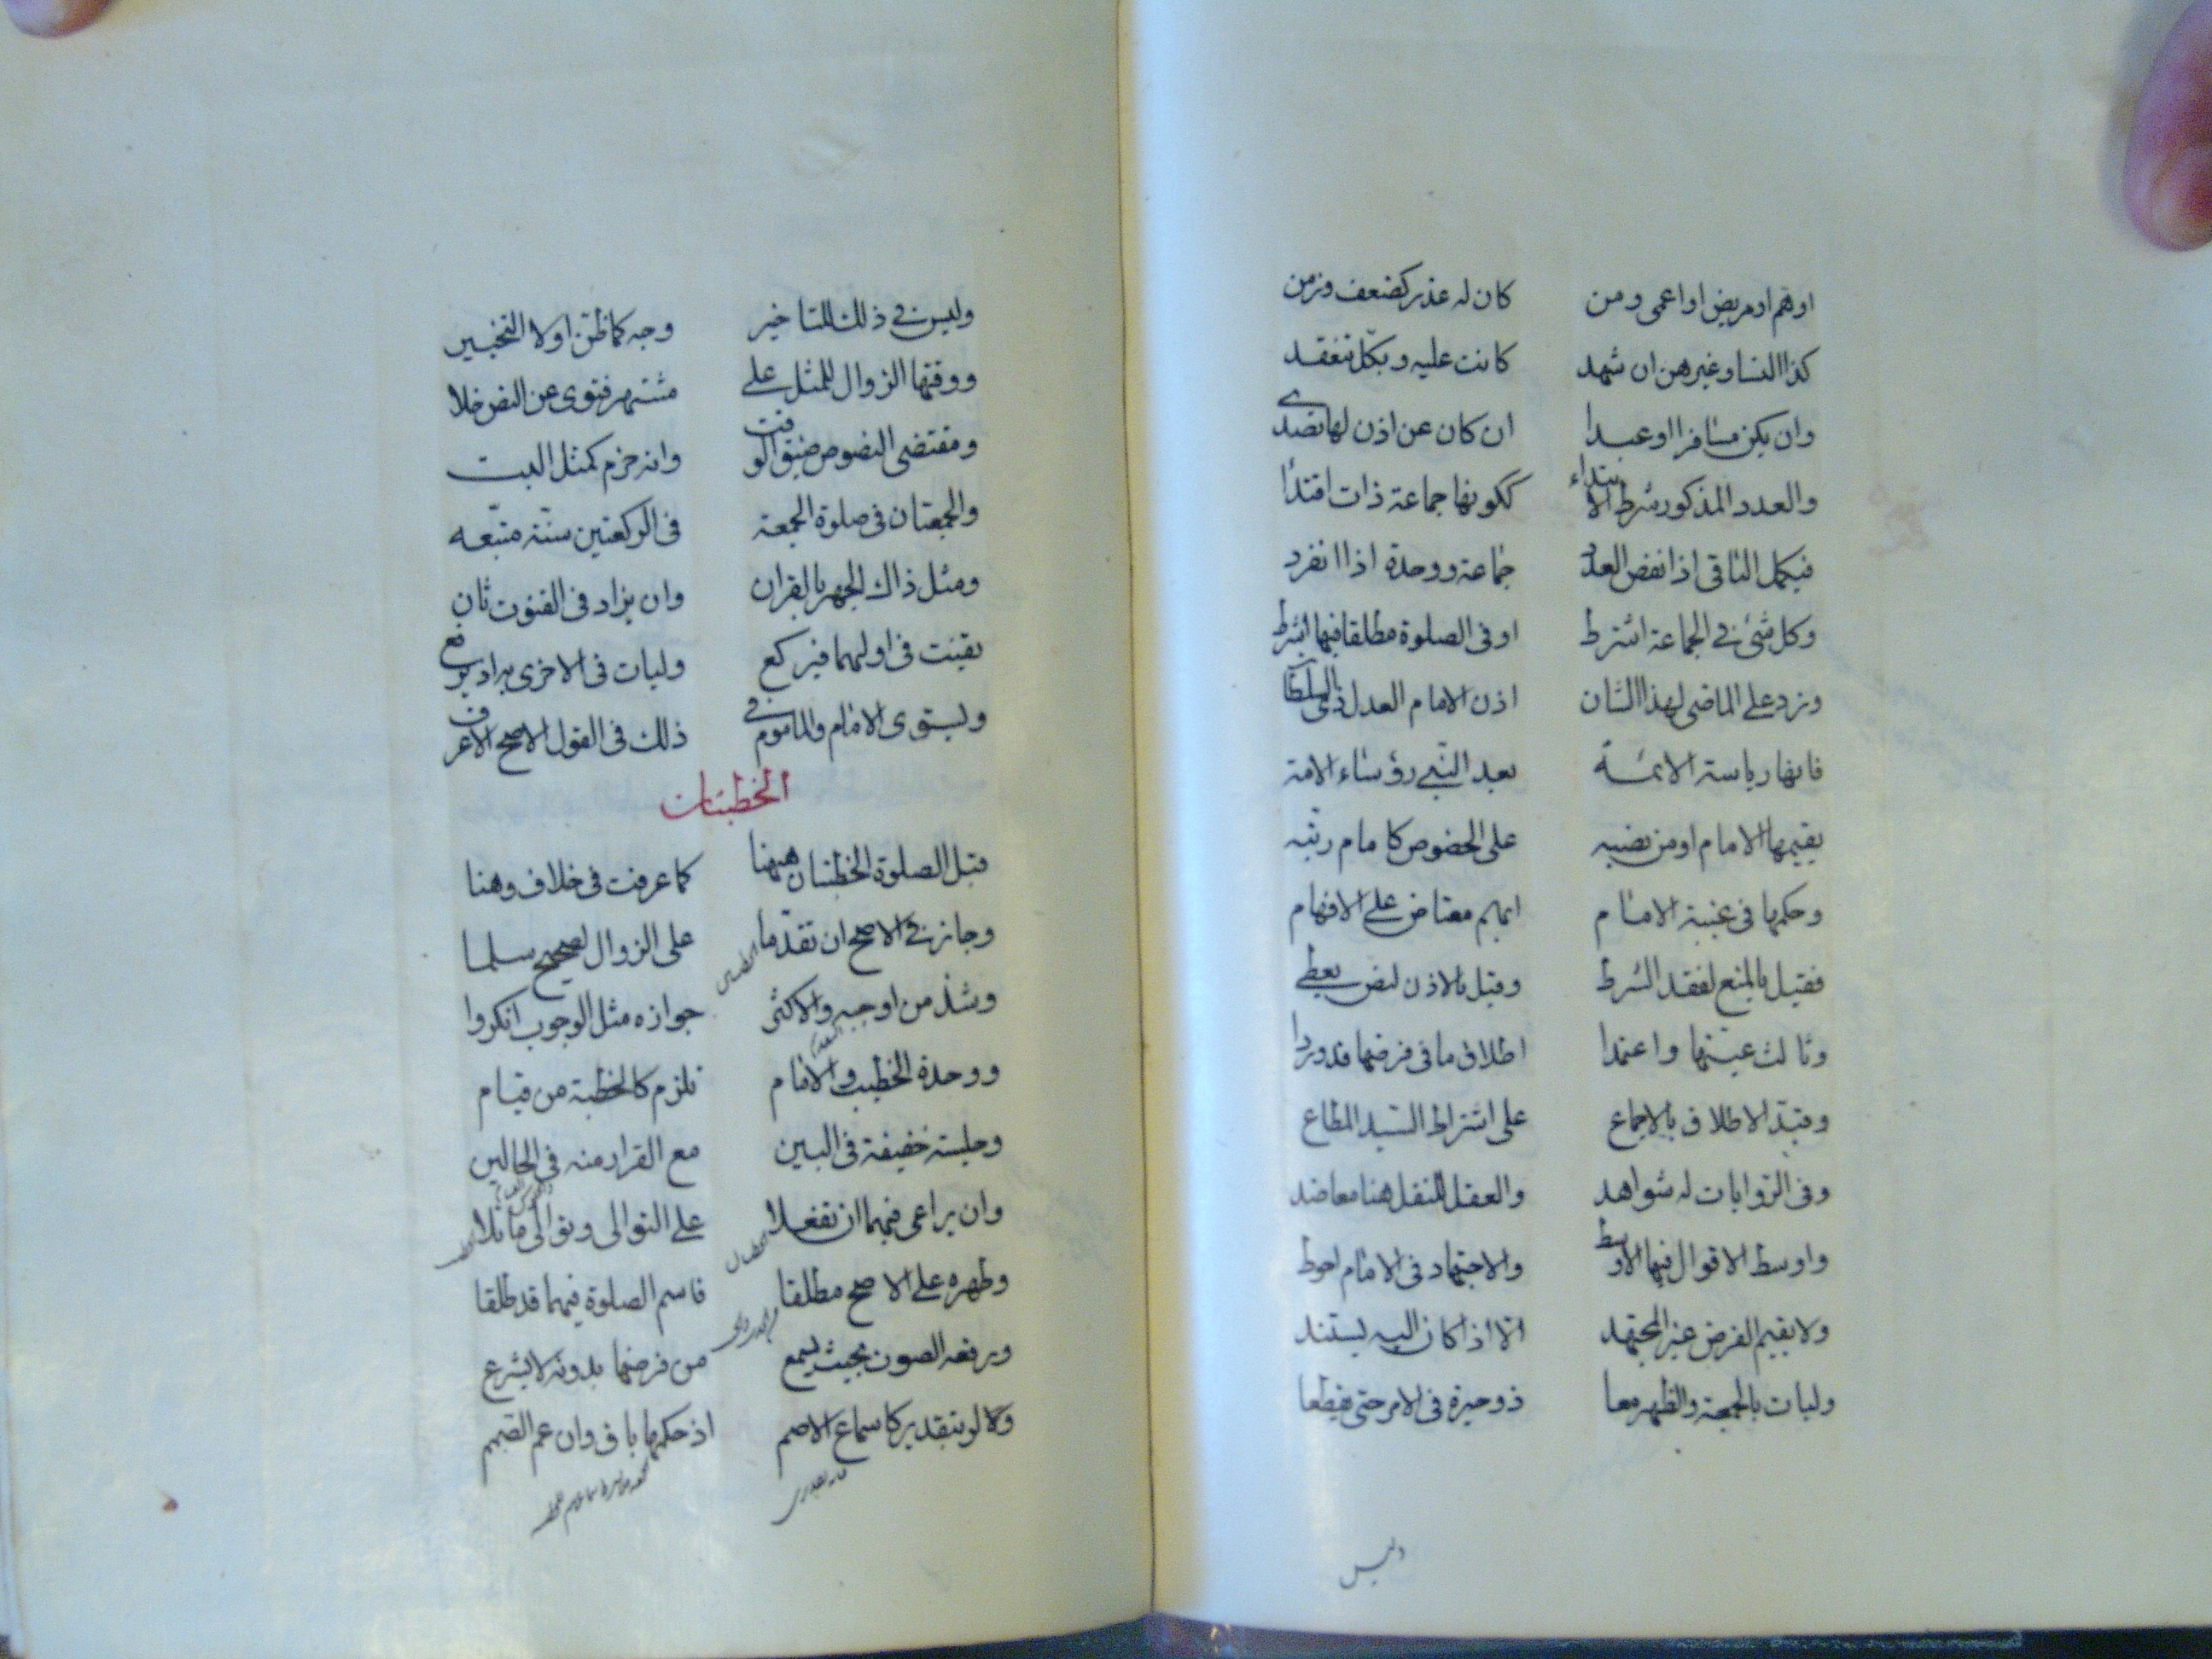 او هم او مريض او اعمى و من كان له عذر كضعف و زمن
كذا النسا و غيرهن ان شهد كانت عليه و بكل تنعقد
وان يكن مسافرا او عبدا ان كان عن اذن لها تصدى
والعدد المذكور شرط الابتداء ككونها جماعة ذات اقتدا
فيكمل الباقى اذا انفض العدد جماعة و وحدة اذا انفرد
وكل شئ فى الجماعة اشترط او فى الصلوة مطلقا فيها اشترط
وزد على الماضى لهذا الشان اذن الامام العدل ذى السلطان
فانها رياسة الائمة بعد النبى رؤساء الامة
يقيمها الامام او من نصبه على الخصوص كامام رتبه
وحكمها فى غيبة الامام ابهم معتاض على الافهام
فقيل بالمنع لفقد الشرط وقيل بالاذن لنص يعطى
وثالث عينها واعتمدا اطلاق ما فى فرضها قد وردا
وقيد الاطلاق بالاجماع على اشتراط السيد المطاع
وفى الروايات له شواهد والعقل للنقل هنا معاضد
واوسط الاقوال فيها الاوسط والاجتهاد فى الامام احوط
ولا يقيم الفرض غير المجتهد الا اذا كان اليه يستند
وليات بالجمعة والظهر معا ذو حيرة فى الامر حتى يقطعا
وليس
وليس فى ذلك للتاخير وجه كما ظن اولا التخيير
ووقتها الزوال للمثل على مشتهر فتوى عن النص خلا
ومقتضى النصوص ضيق الوقت وانه حزم كمثل البت
والجمعتان فى صلوة الجمعة فى الركعتين سنة متبعه
ومثل ذاك الجهر بالقران وان يزاد فى القنوت ثان
يقنت فى اولهما فيركع وليات فى الاخرى به اذ يرفع
ويستوى الامام والماموم فى ذلك فى القول الاصح الاعرف
الخطبتان
قبل الصلوة الخطبتان ههنا كما عرفت فى خلاف وهنا
وجاز فى الاصح ان تقدما على الزوال لصحيح سلما
وشذ من اوجبه والاكثر جوازه مثل الوجوب انكروا
ووحدة الخطيب والامام تلزم كالخطبة من قيام
وجلسة خفيفة فى البين مع القرار منه فى الحالين
وان يراعى فيهما ان تفعلا على التوالى وتوالى ما تلا
وطهره على الاصح مطلقا فاسم الصلوة فيهما قد طلقا
ورفعه الصوت بحيث يسمع من فرضها بدونه لا يشرع
ولا لو بتقدير كاسماع الاصم اذ حكمها باق وان عم الصمم